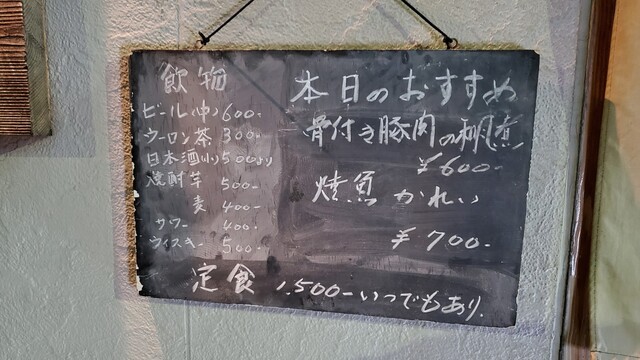 飲物
ビール(中) 600-
ウーロン茶 300-
日本酒(小) 500より
焼酎芋 500-
麦 400-
サワー 400-
ウィスキー 500-
本日のおすすめ
骨付き豚肉の煮
¥600-
焼魚 かれい
¥700-
定食 1,500-いつでもあり.